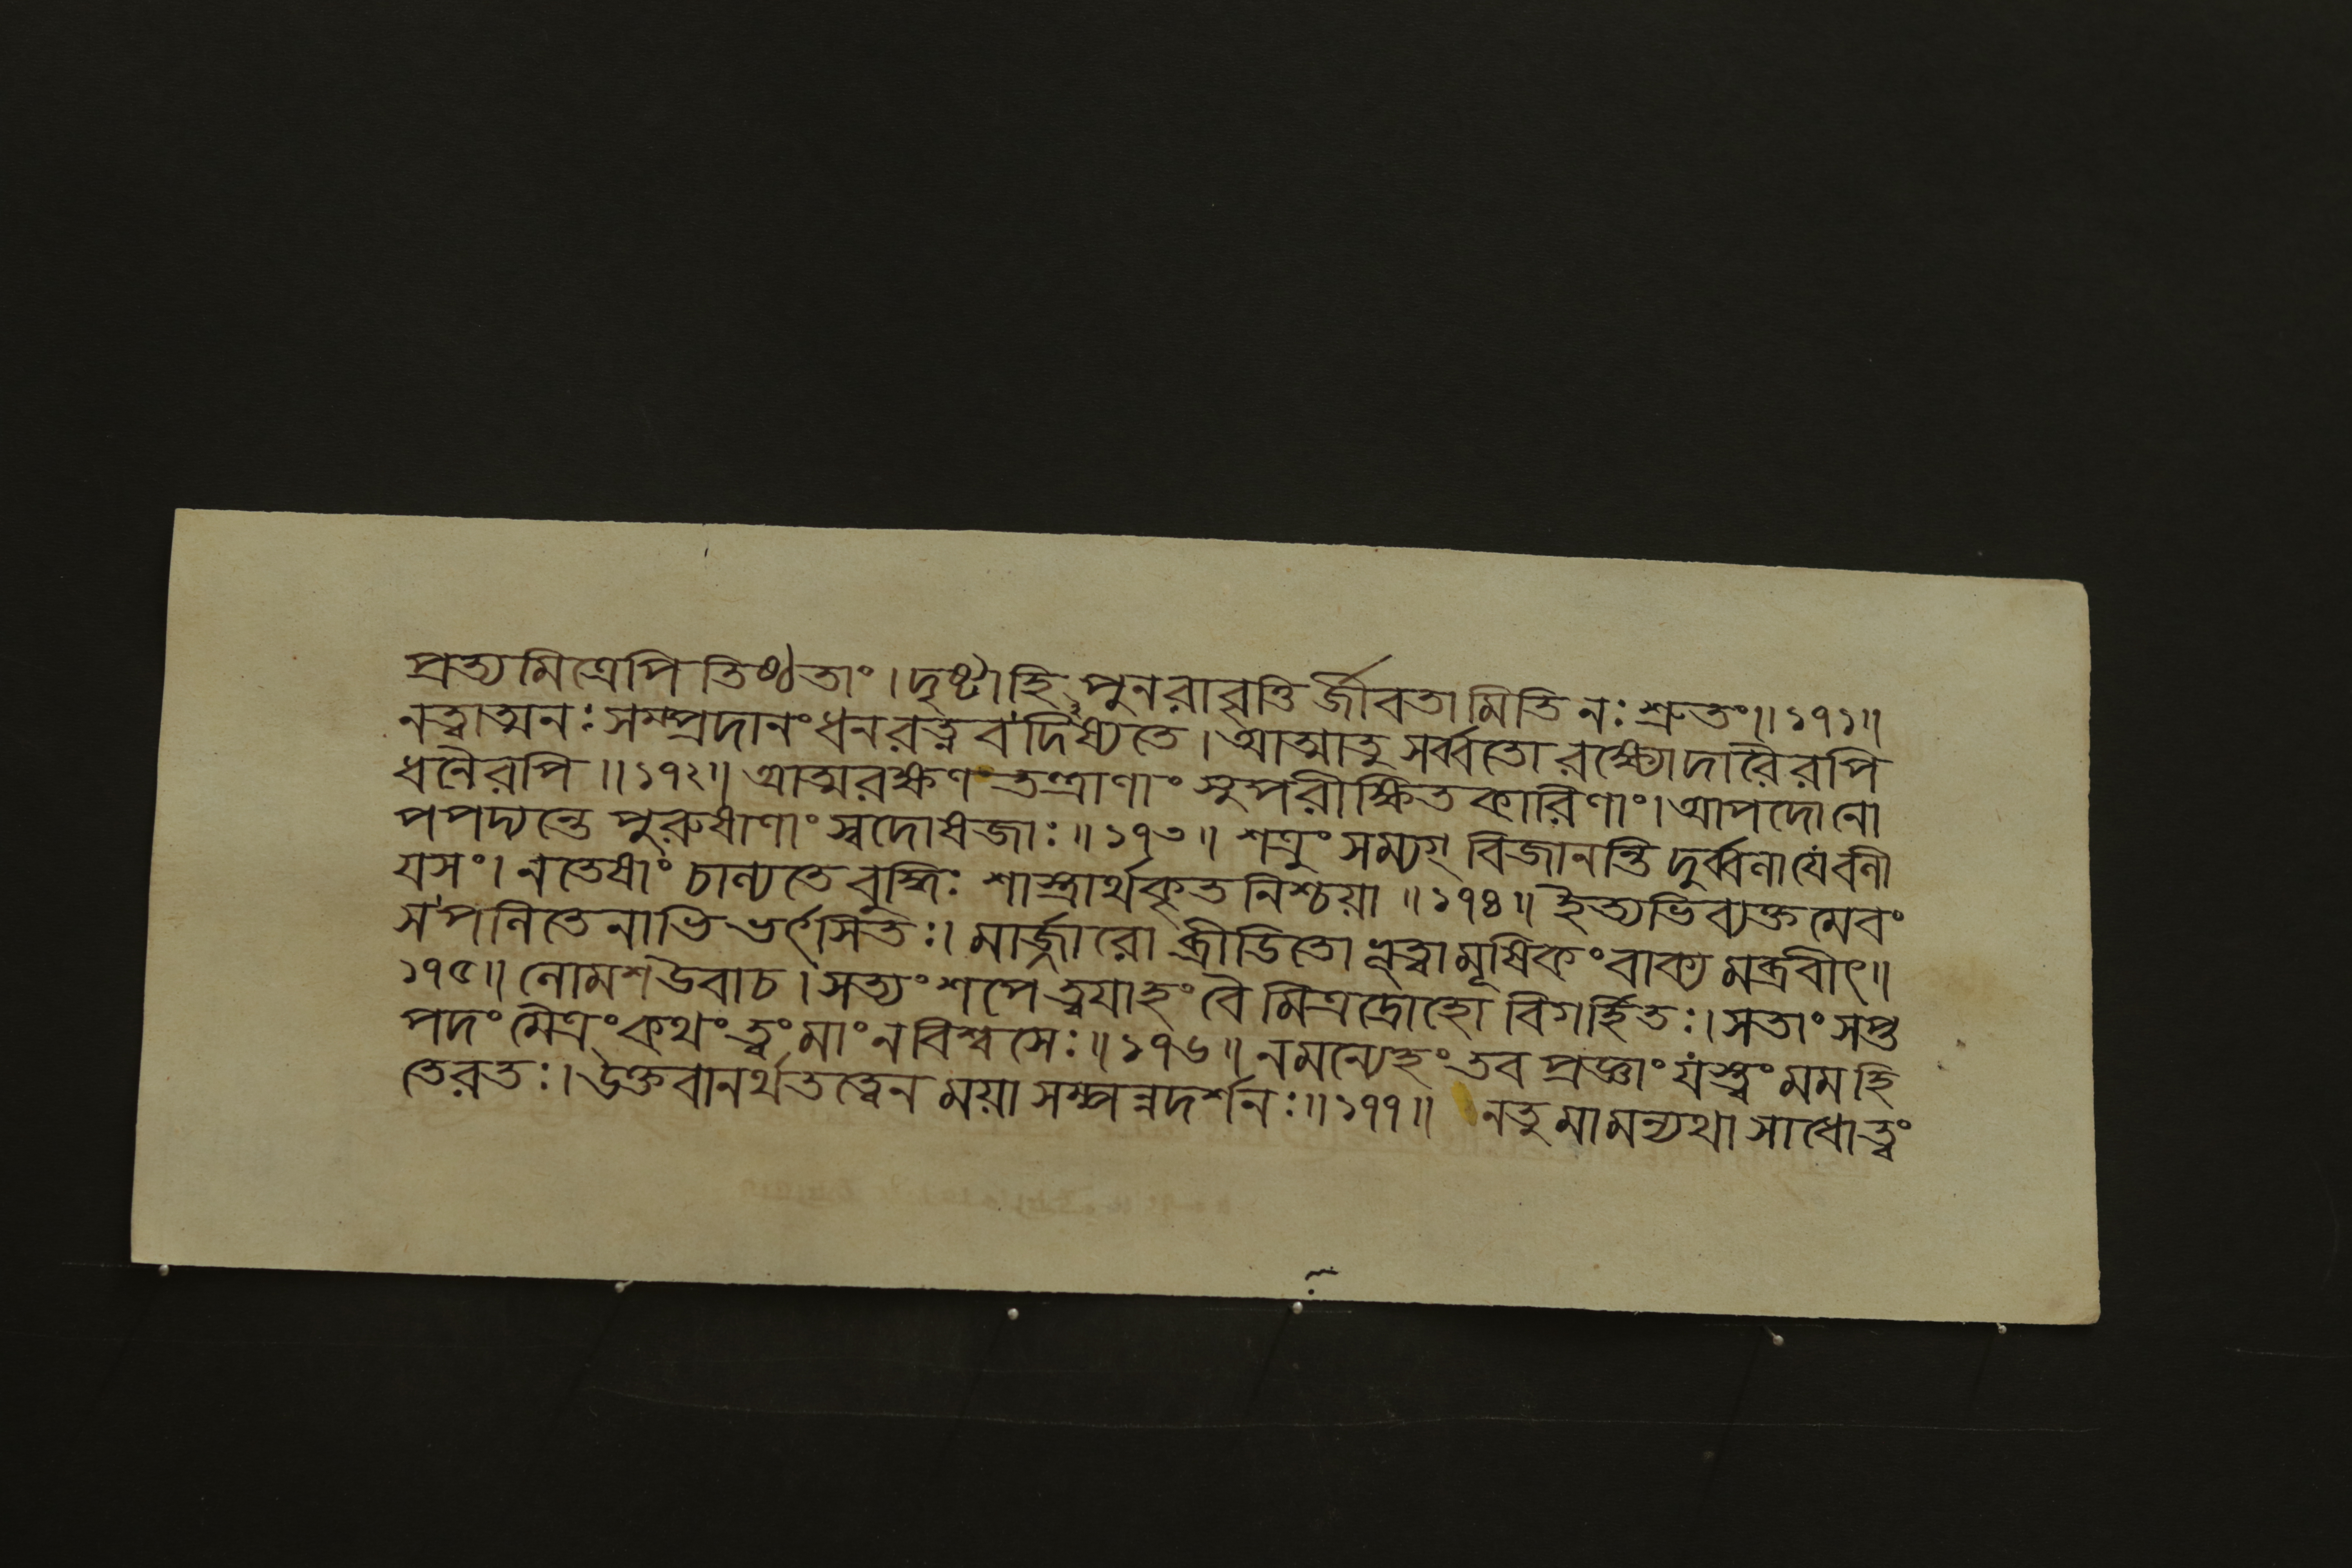 প্রত্যমিত্রেপি তিষ্ঠতাং। দৃষ্টাহি পুনরাবৃত্তি র্জীবতামিতি নঃ শ্রুতং॥১৭১॥
নত্বাত্মনঃ সম্প্রদানং ধনরত্নবদিষ্যতে। আত্মাতু সর্ব্বতো রক্ষ্যো দারৈরপি
ধনৈরপি॥১৭২॥ আত্মরক্ষণতন্ত্রাণাং সুপরীক্ষিতকারিণাং। আপদোনো
পপদ্যন্তে পুরুষাণাং স্বদোষজাঃ॥১৭৩॥ শত্রুং সম্যগ্ বিজানন্তি দুর্ব্বলা যে বলী
য়সং। নতেষাং চাল্যতে বুদ্ধিঃ শাস্ত্রার্থকৃতনিশ্চয়া॥১৭৪॥ ইত্যভিব্যক্তমেবং
স পলিতেনাভিভর্ৎসিতঃ। মার্জ্জারো ব্রীডিতো ভূত্বা মূষিকং বাক্যমব্রবীৎ॥
১৭৫॥ লোমশ উবাচ। সত্যং শপে ত্বয়াহং বৈ মিত্রদ্রোহো বিগর্হিতঃ। সতাং সপ্ত
পদং মৈত্রং কথং ত্বং মাং ন বিশ্বসেঃ॥১৭৬॥ নমন্যেহং তব প্রজ্ঞাং যস্ত্বং মম হি
তেরতঃ। উক্তবানর্থতত্ত্বেন ময়া সম্পন্নদর্শনঃ॥১৭৭॥ নতু মামন্যথা সাধো ত্বং